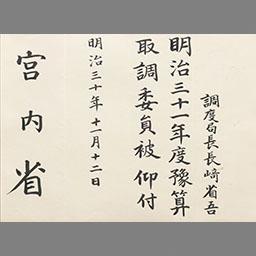 調度局長長崎省吾
明治三十一年度豫算
取調委員被仰付
明治三十年十一月十二日
宮内省